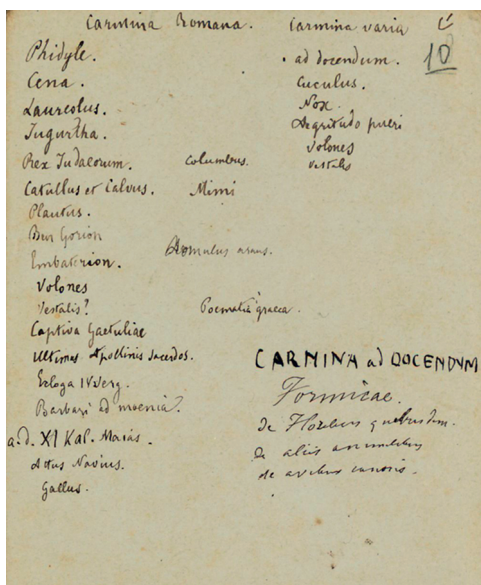 Carmina Romana.
Phidyle.
Cena.
Laureolus.
Iugurtha.
Rex Iudaeorum.
Catullus et Calvus.
Plautus.
Ben Gorion
Embaterion.
Volones
Vestalis?
Captiva Gaetuliae
Ultimus Apollinis sacerdos.
Ecloga IV Verg.
Barbari ad moenia?
a.d. XI Kal. Maias.
Attus Navius.
Gallus.
Columbus.
Mimi
Romulus arans.
Poematia graeca.
Carmina varia
10
ad docendum.
Cuculus.
Nox.
Aegritudo pueri
Volones
Vestalis
CARMINA ad DOCENDUM
Formicae.
de Floribus quibusdam.
de aliis animalibus
de avibus canoris.